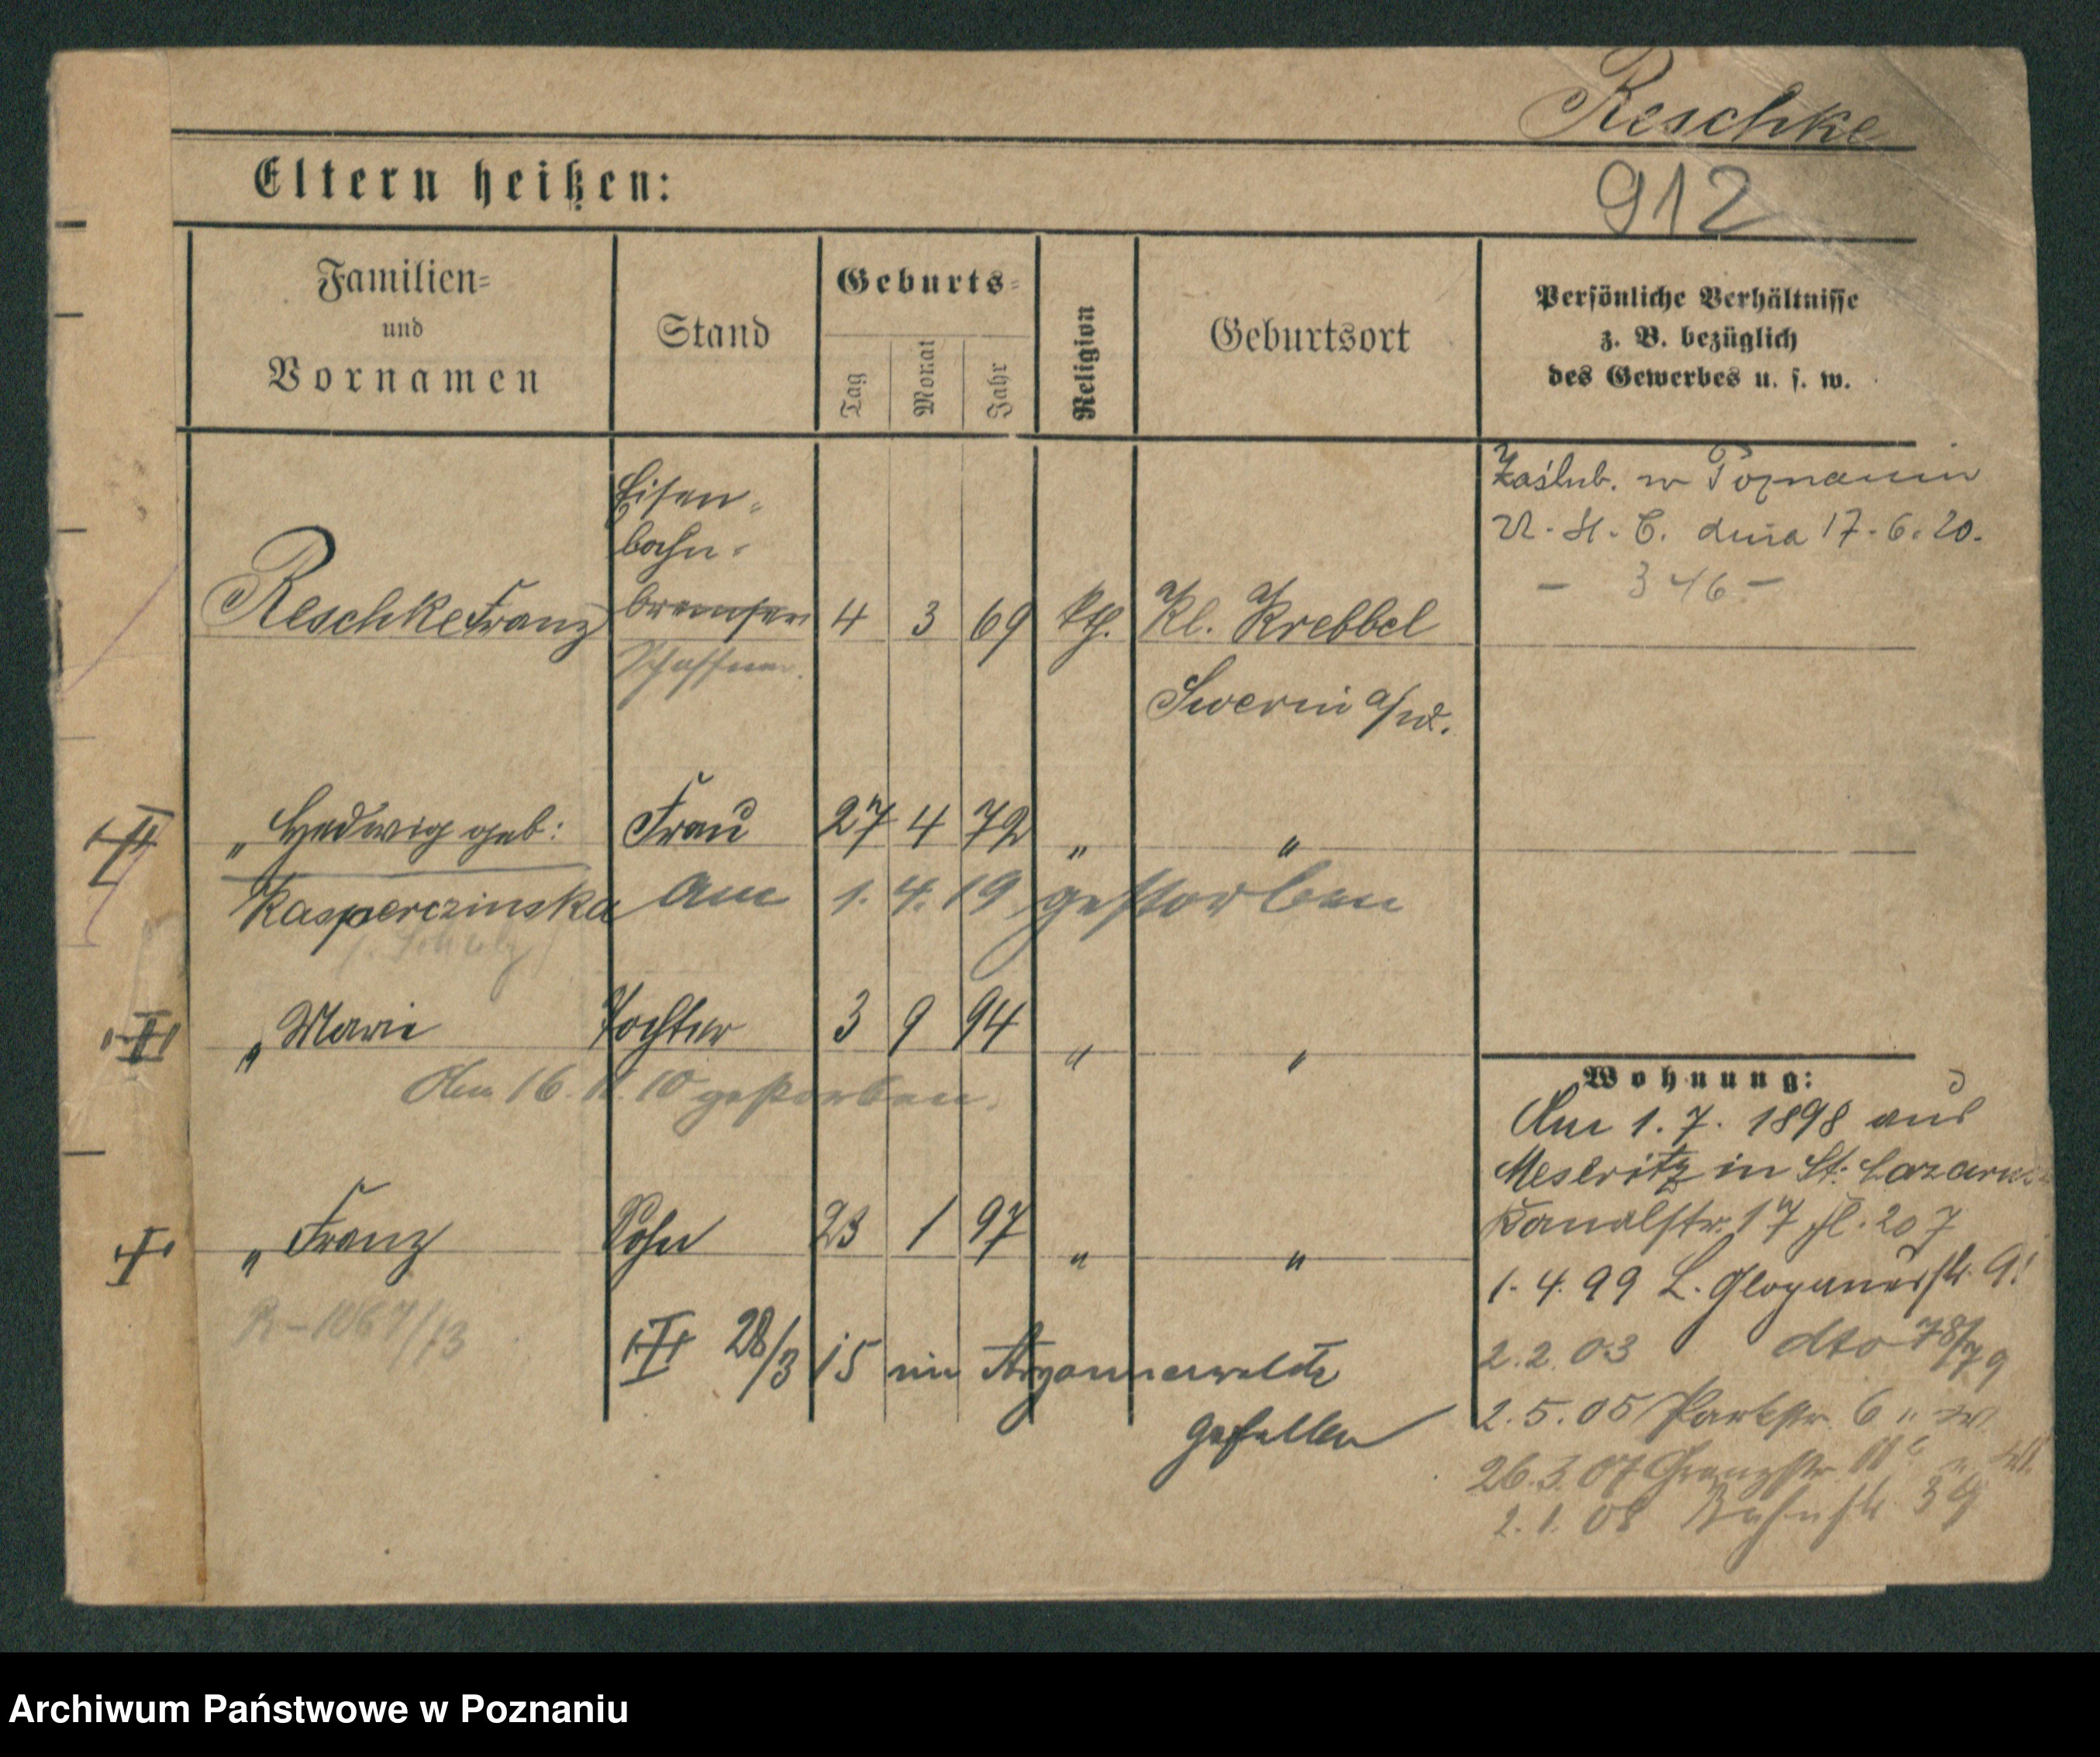 Reschke
912
Eltern heißen:
Familien-
und
Vornamen
Stand
Geburts-
Tag
Monat
Jahr
Religion
Geburtsort
Persönliche Verhältnisse
z. B. bezüglich
des Gewerbes u. s. w.
Eisen-
bahn-
Reschke Franz bremser 4 3 69 kth. Kl. Krebbel
Schaffner.
Swerin a/W.
Zaślub. w Poznaniu
U. St. C. dnia 17.6.20.
– 346 –
" Hedwig geb: Frau 27 4 72 " "
Kasperczinska am 1.4.19 gestorben
" Marie Tochter 3 9 94 " "
Am 16.11.10 gestorben.
" Franz Sohn 23 1 97 " "
28/3 15 im Argonnerwalde
gefallen
Wohnung:
Am 1.7. 1898 aus
Meseritz in St. Lazarus
Kanalstr. 17 fl. 207
1.4.99 L. Glogauerstr. 91
2.2.03 dto 78/79
2.5.05 Parkstr. 6
26.3.07 Grenzstr. 11
2.1.08 Bahnstr.
Archiwum Państwowe w Poznaniu